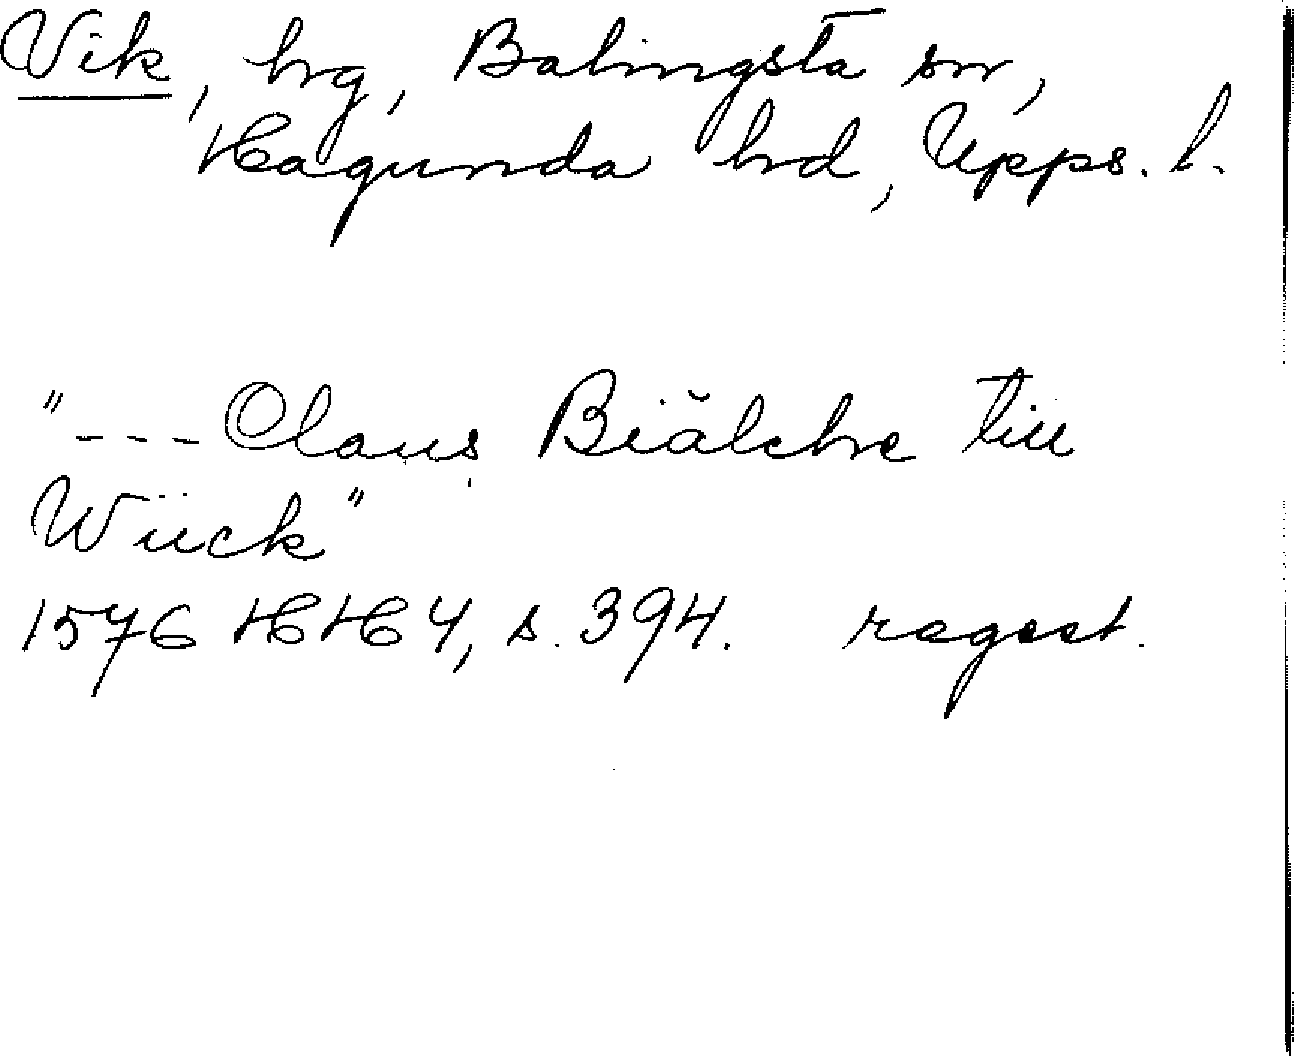 Vik, hrg, Balingsta sn,
Hagunda hrd, Upps. l.
"---Claus Biälche till
Wiick"
1576 HH 4, s. 394. regest.